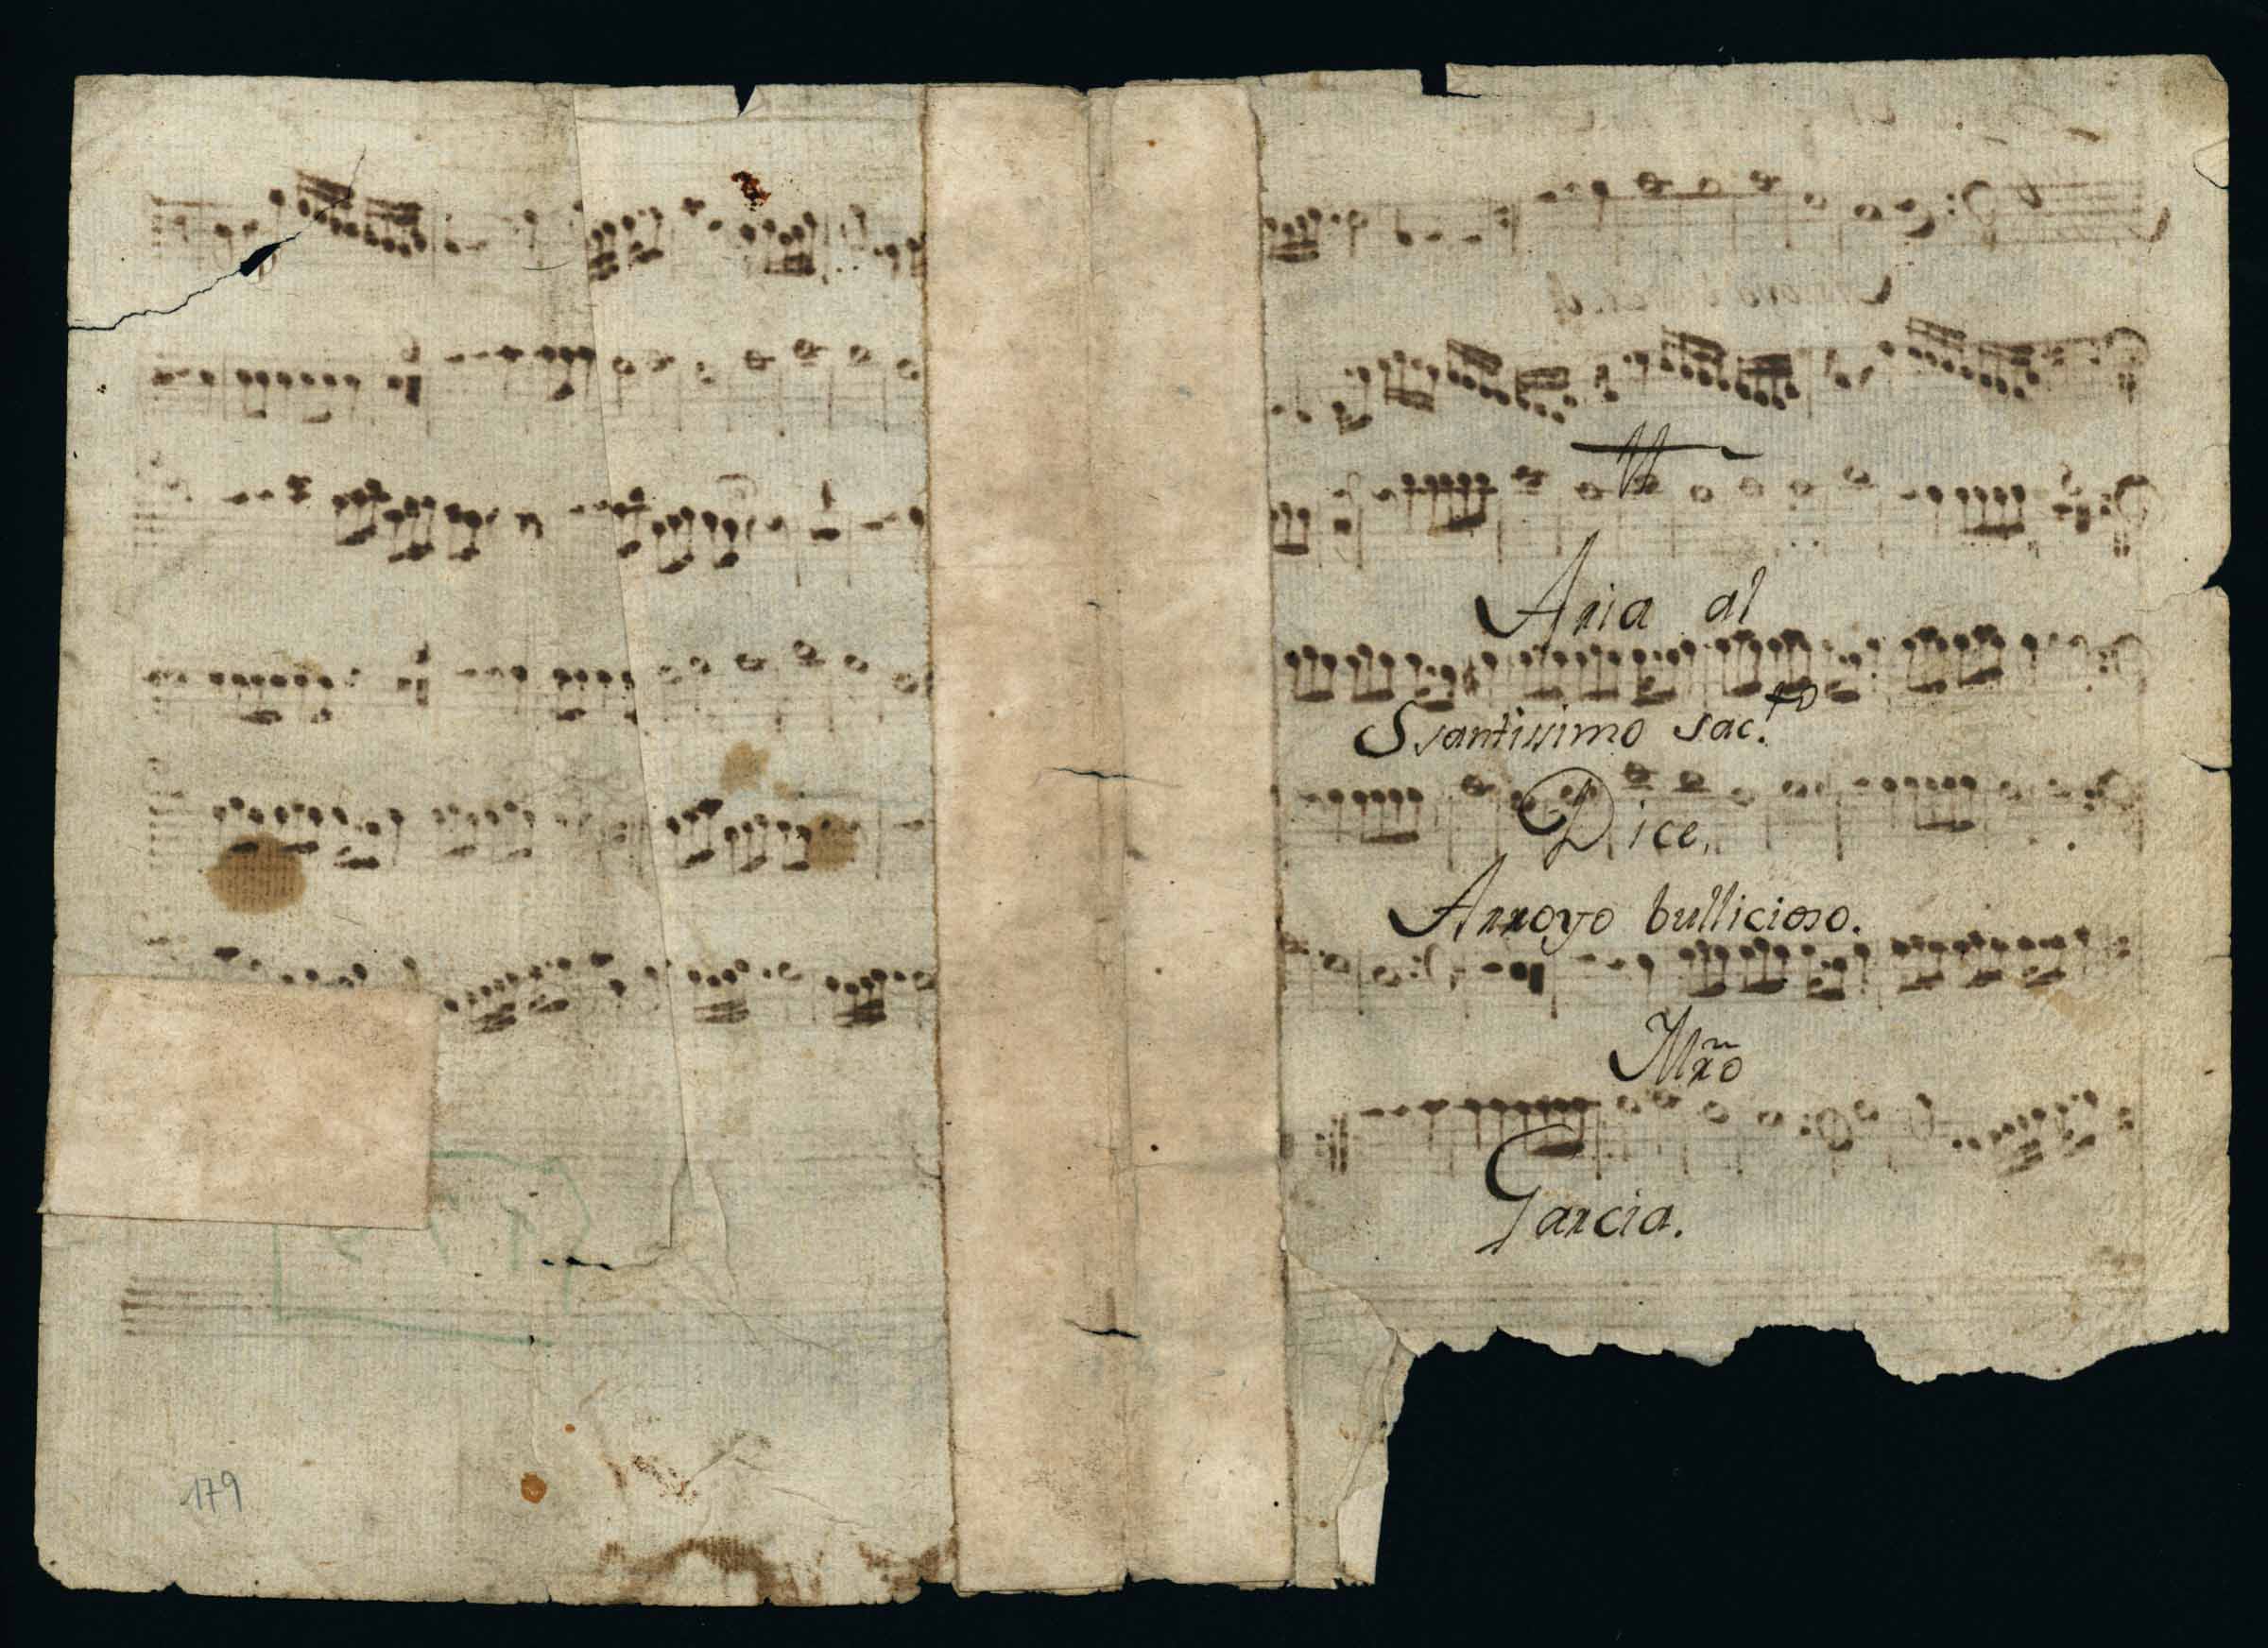 Aria al
Ssantissimo Sac.to
Dice,
Arroyo bullicioso.
Mr̃o
Garcia.
179